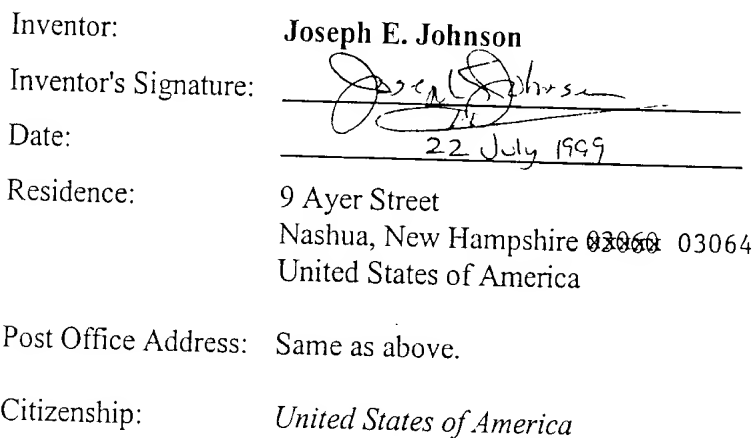 Inventor: Joseph E. Johnson
Inventor's Signature: Joseph Johnson
Date: 22 July 1999
Residence: 9 Ayer Street
Nashua, New Hampshire 03060 03064
United States of America
Post Office Address: Same as above.
Citizenship: United States of America